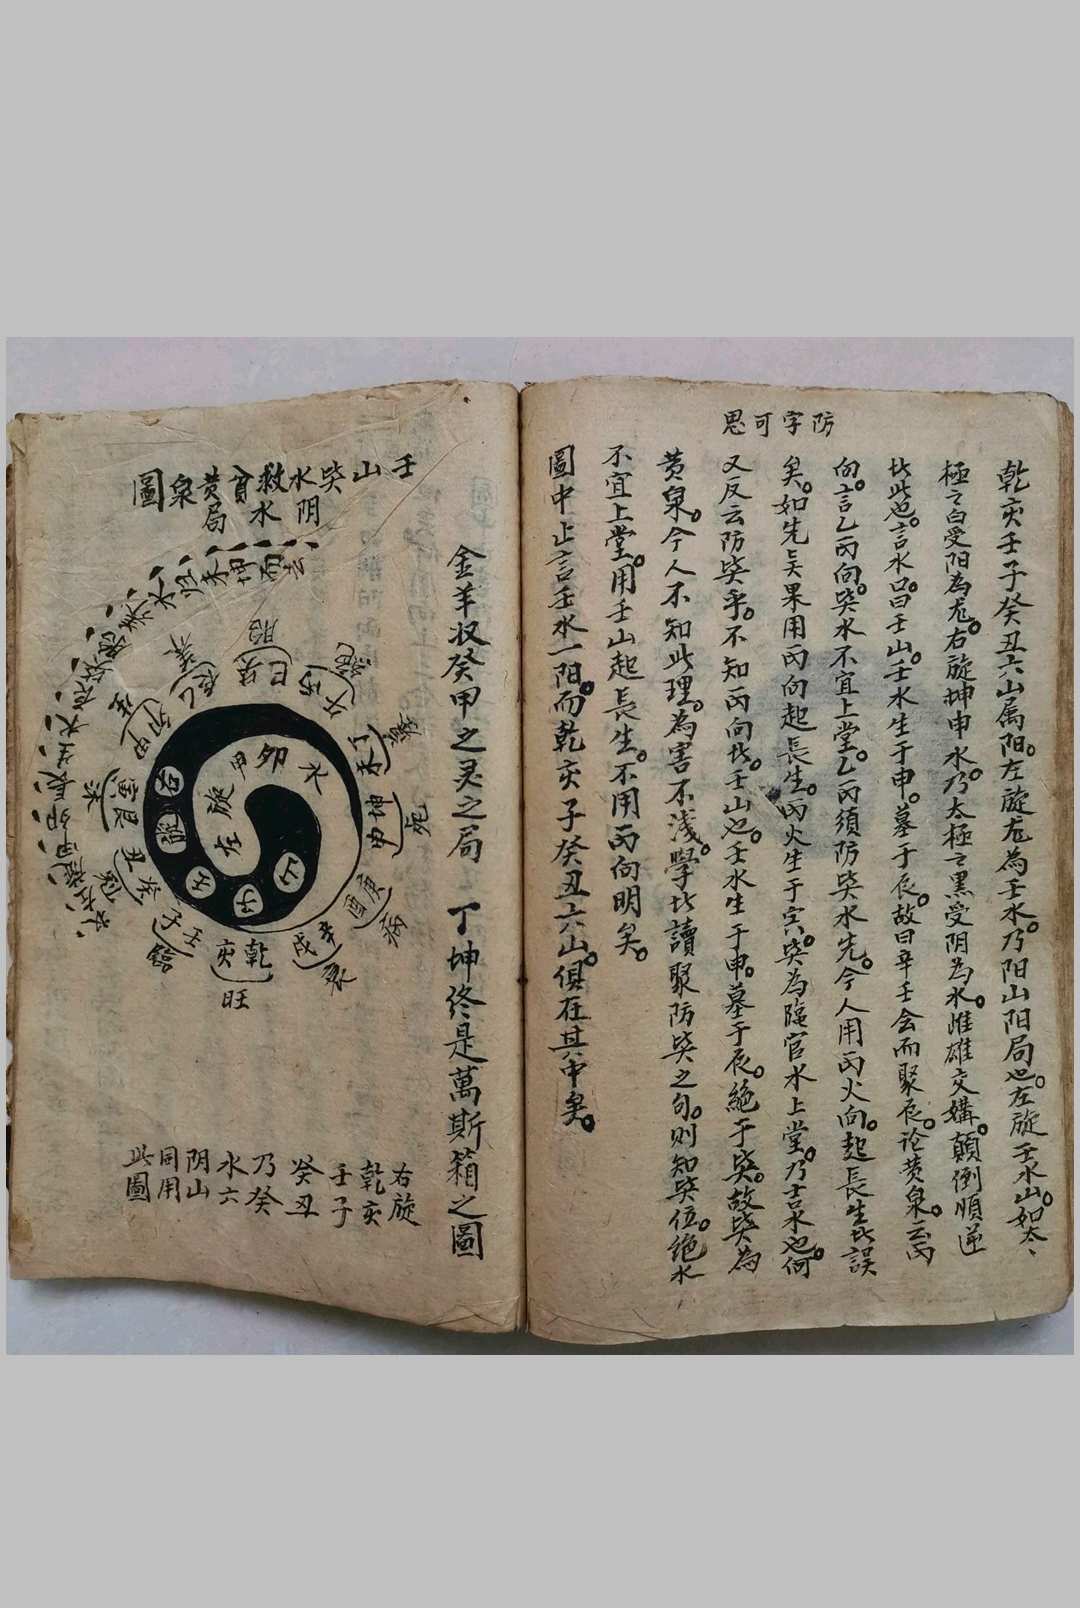 防字可思
乾亥壬子癸丑六山属阳。左旋龙為壬水。乃阳山阳局也。左旋壬水山。如太、
極之白受阳為龙。右旋坤申水。乃太極之黑受阴為水。雌雄交媾。顛倒順逆
此此也。言水口。曰壬山。壬水生于申。墓于辰。故曰辛壬会而聚辰。论黄泉。云丙
向。言乙丙向。巽水不宜上堂。乙丙須防巽水先。今人用丙火向。起長生此誤
矣。如先天果用丙向起長生。丙火生于寅。巽為臨官水上堂。乃吉水也。何
又反云防巽乎。不知丙向此。壬山也。壬水生于申。墓于辰。絕于巽。故巽為
黄泉。今人不知此理。為害不浅。學此讀聚防巽之句。则知巽位。绝水
不宜上堂。用壬山起長生。不用丙向明矣。
圖中止言壬水一阳。而乾亥子癸丑六山。俱在其中矣。
壬山巽水救貧黄泉圖
阴水局
金羊収癸甲之灵之局
丁坤终是萬斯箱之圖
右旋
乾亥
壬子
癸丑
乃癸
水六
阴山
同用
此圖
左旋甲卯水
山子壬
胎
巳
午丙
丁未
坤申
庚酉
病
辛戌
衰
乾亥
旺
壬子
癸丑
艮寅
沐
甲卯
养